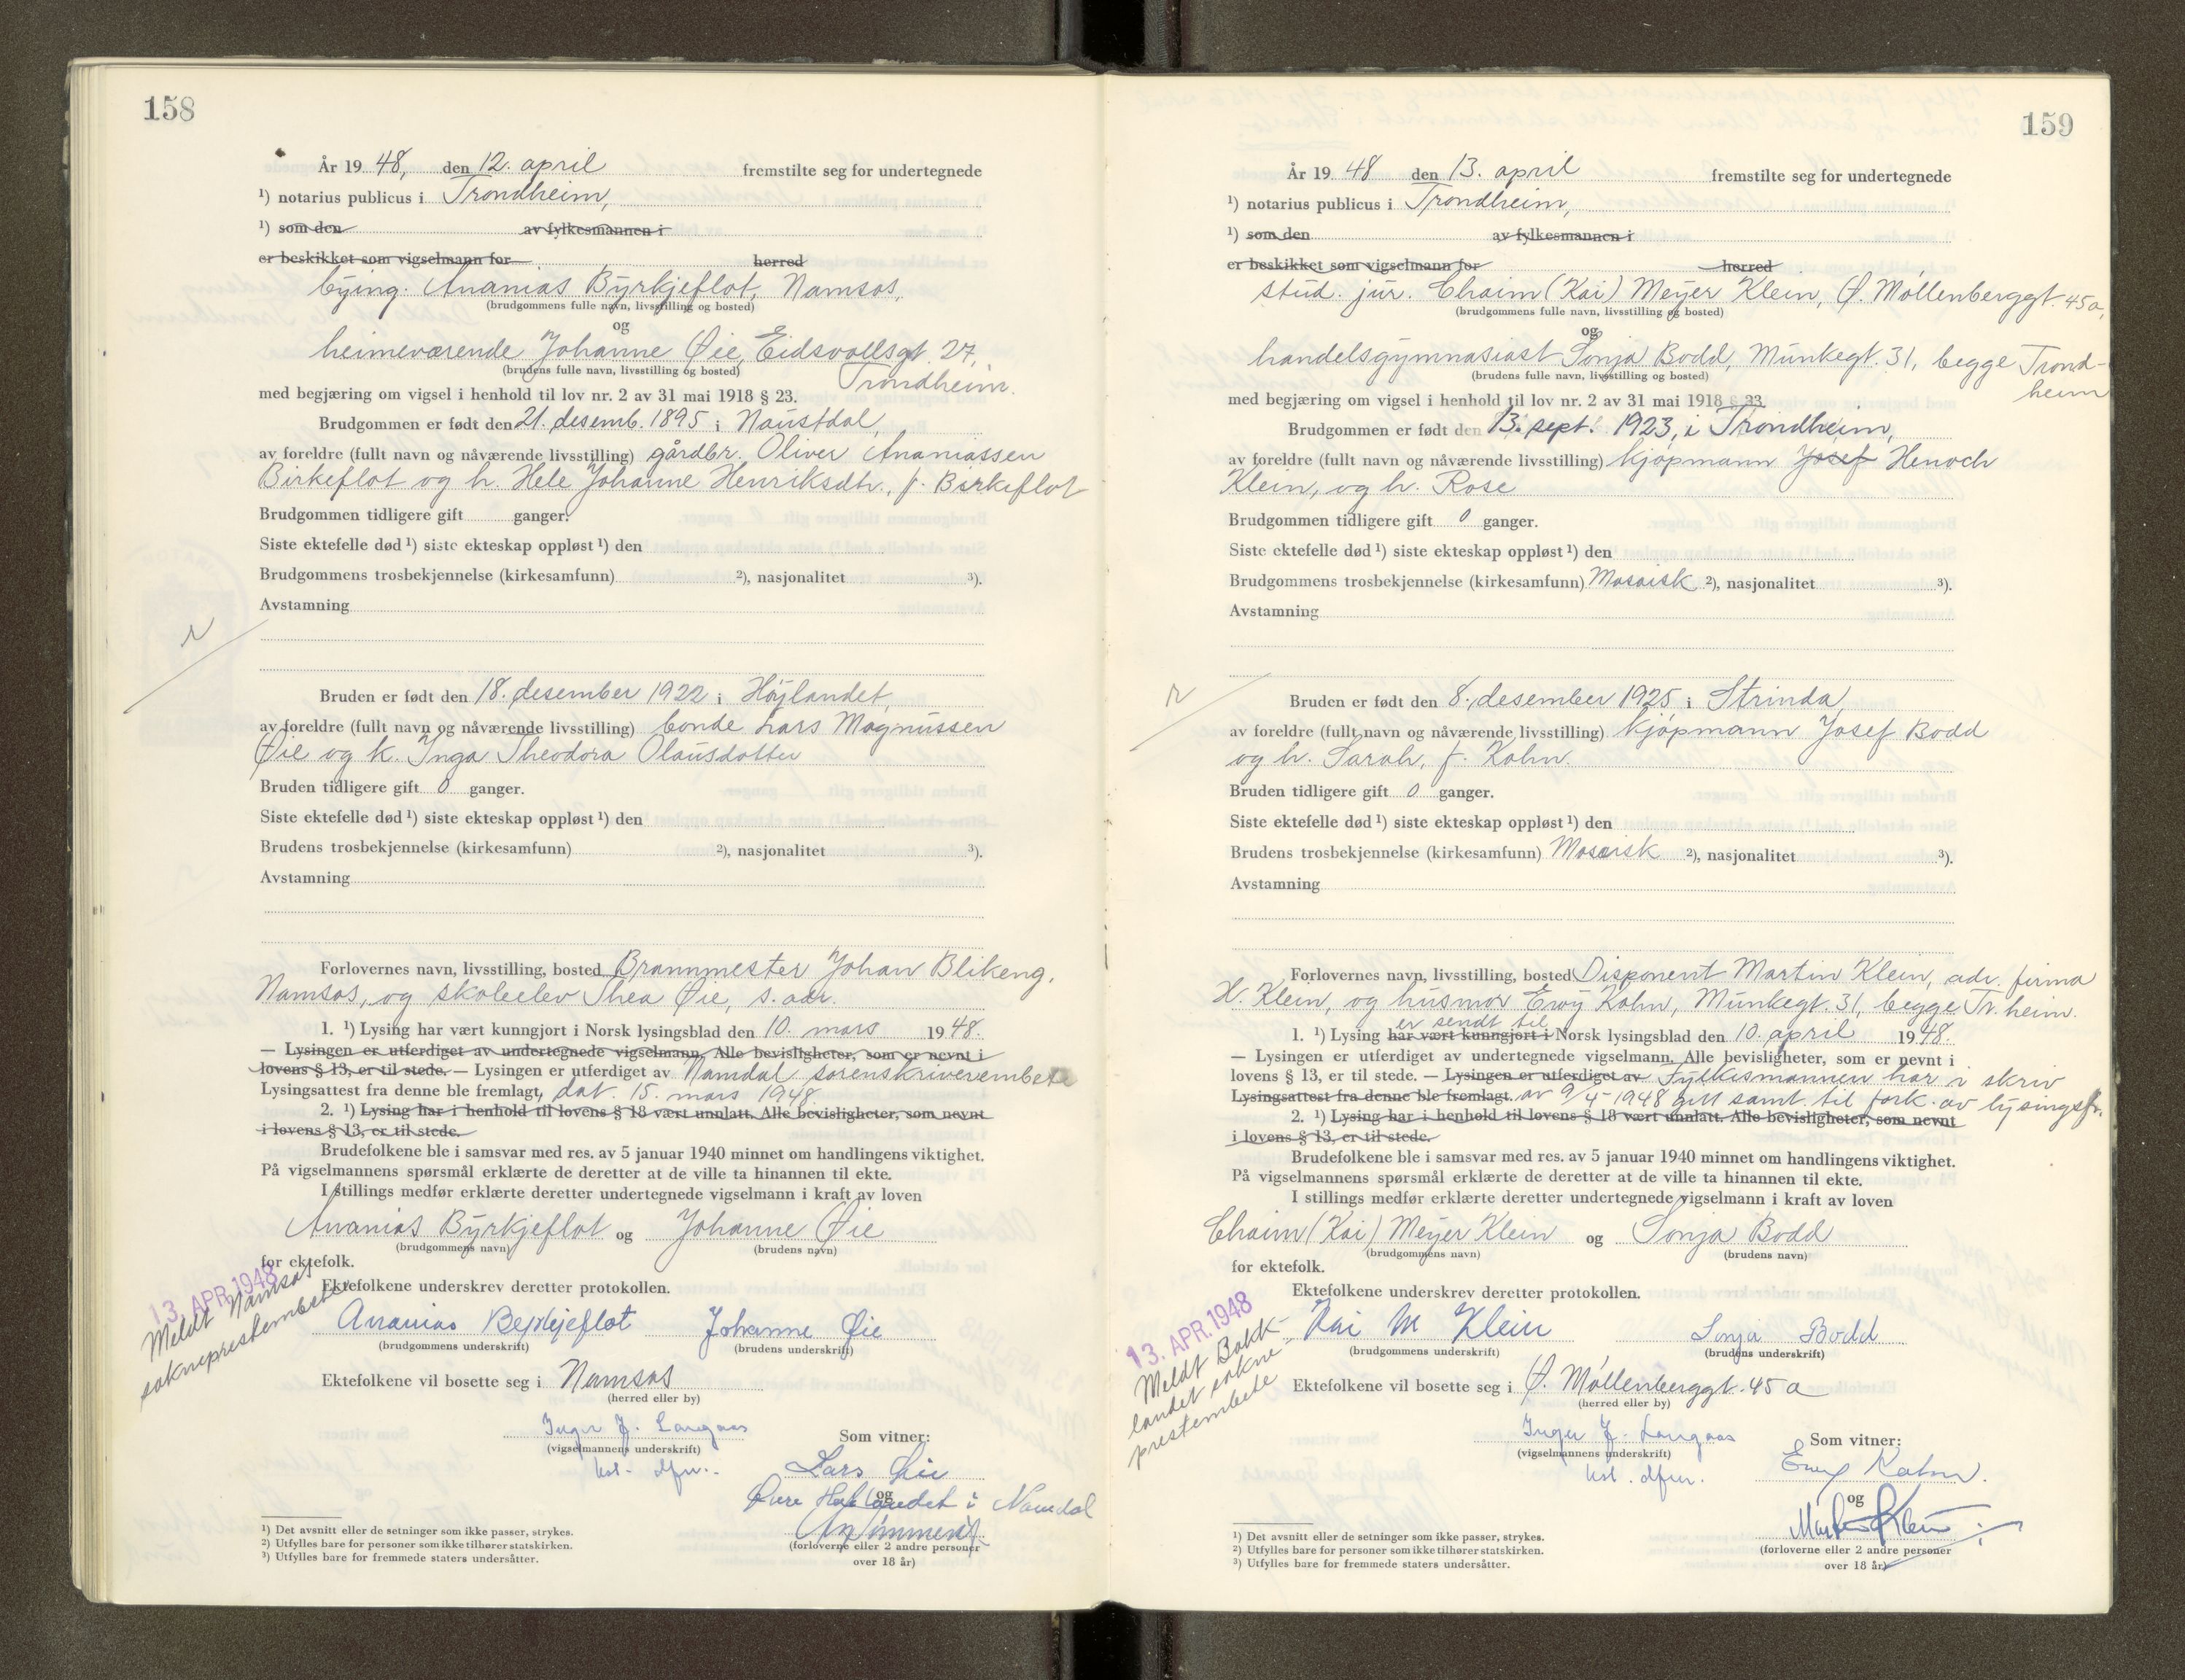 158
År 19 48, den 12. april fremstilte seg for undertegnede
¹) notarius publicus i Trondheim,
¹) som den av fylkesmannen i
er beskikket som vigselmann for herred
bying. Ananias Byrkjeflot, Namsos,
(brudgommens fulle navn, livsstilling og bosted)
og
heimeværende Johanne Øie, Eidsvollsgt. 27,
(brudens fulle navn, livsstilling og bosted)
Trondheim.
med begjæring om vigsel i henhold til lov nr. 2 av 31 mai 1918 § 23.
Brudgommen er født den 21. desemb. 1895 i Naustdal,
av foreldre (fullt navn og nåværende livsstilling) gårdbr. Oliver Ananiassen
Birkeflot og h. Hele Johanne Henriksdtr., f. Birkeflot
Brudgommen tidligere gift ganger.
Siste ektefelle død ¹) siste ekteskap oppløst ¹) den
Brudgommens trosbekjennelse (kirkesamfunn) ²), nasjonalitet ³).
Avstamning
Bruden er født den 18. desember 1922 i Høylandet,
av foreldre (fullt navn og nåværende livsstilling) bonde Lars Magnussen
Øie og k. Inga Theodora Olausdotter
Bruden tidligere gift 0 ganger.
Siste ektefelle død ¹) siste ekteskap oppløst ¹) den
Brudens trosbekjennelse (kirkesamfunn) ²), nasjonalitet ³).
Avstamning
Forlovernes navn, livsstilling, bosted Brannmester Johan Blikeng,
Namsos, og skoleelev Thea Øie, s. adr.
1. ¹) Lysing har vært kunngjort i Norsk lysingsblad den 10. mars 19 48.
— Lysingen er utferdiget av undertegnede vigselmann. Alle bevisligheter, som er nevnt i
lovens § 13, er til stede. — Lysingen er utferdiget av Namdal sorenskriverembete
Lysingsattest fra denne ble fremlagt, dat. 15. mars 1948.
2. ¹) Lysing har i henhold til lovens § 18 vært unnlatt. Alle bevisligheter, som nevnt
i lovens § 13, er til stede.
Brudefolkene ble i samsvar med res. av 5 januar 1940 minnet om handlingens viktighet.
På vigselmannens spørsmål erklærte de deretter at de ville ta hinannen til ekte.
I stillings medfør erklærte deretter undertegnede vigselmann i kraft av loven
Ananias Byrkjeflot og Johanne Øie
(brudgommens navn) (brudens navn)
for ektefolk.
13. APR. 1948
Meldt Namsos
sokneprestembete
Ektefolkene underskrev deretter protokollen.
Ananias Byrkjeflot Johanne Øie
(brudgommens underskrift) (brudens underskrift)
Ektefolkene vil bosette seg i Namsos
(herred eller by)
Inger J. Langaas
(vigselmannens underskrift)
kst. dfm.
Som vitner:
Lars Øie
og
Øvre Høylandet i Namdal
(forloverne eller 2 andre personer
over 18 år)
¹) Det avsnitt eller de setninger som ikke passer, strykes.
²) Utfylles bare for personer som ikke tilhører statskirken.
³) Utfylles bare for fremmede staters undersåtter.
159
År 19 48 den 13. april fremstilte seg for undertegnede
¹) notarius publicus i Trondheim,
¹) som den av fylkesmannen i
er beskikket som vigselmann for herred
stud. jur. Chaim (Kai) Meyer Klein, Ø. Møllenberggt. 45a,
(brudgommens fulle navn, livsstilling og bosted)
og
handelsgymnasiast Sonja Bodd, Munkegt. 31, begge Trond-
heim
(brudens fulle navn, livsstilling og bosted)
med begjæring om vigsel i henhold til lov nr. 2 av 31 mai 1918 § 23.
Brudgommen er født den 13. sept. 1923, i Trondheim,
av foreldre (fullt navn og nåværende livsstilling) kjøpmann Josef Henoch
Klein, og h. Rose
Brudgommen tidligere gift 0 ganger.
Siste ektefelle død ¹) siste ekteskap oppløst ¹) den
Brudgommens trosbekjennelse (kirkesamfunn) Mosaisk ²), nasjonalitet ³).
Avstamning
Bruden er født den 8. desember 1925 i Strinda,
av foreldre (fullt navn og nåværende livsstilling) kjøpmann Josef Bodd
og h. Sarah, f. Kahn.
Bruden tidligere gift 0 ganger.
Siste ektefelle død ¹) siste ekteskap oppløst ¹) den
Brudens trosbekjennelse (kirkesamfunn) Mosaisk ²), nasjonalitet ³).
Avstamning
Forlovernes navn, livsstilling, bosted Disponent Martin Klein, adr. firma
H. Klein, og husmor Ewy Kahn, Munkegt. 31, begge Tr.heim.
er sendt til
1. ¹) Lysing har vært kunngjort i Norsk lysingsblad den 10. april 19 48.
— Lysingen er utferdiget av undertegnede vigselmann. Alle bevisligheter, som er nevnt i
lovens § 13, er til stede. — Lysingen er utferdiget av Fylkesmannen har i skriv
Lysingsattest fra denne ble fremlagt. av 9/4-1948 gitt samt. til fork. av lysingsfr.
2. ¹) Lysing har i henhold til lovens § 18 vært unnlatt. Alle bevisligheter, som nevnt
i lovens § 13, er til stede.
Brudefolkene ble i samsvar med res. av 5 januar 1940 minnet om handlingens viktighet.
På vigselmannens spørsmål erklærte de deretter at de ville ta hinannen til ekte.
I stillings medfør erklærte deretter undertegnede vigselmann i kraft av loven
Chaim (Kai) Meyer Klein og Sonja Bodd
(brudgommens navn) (brudens navn)
for ektefolk.
Ektefolkene underskrev deretter protokollen.
13. APR. 1948
Meldt Bakk-
landet sokne-
prestembete
Kai M Klein Sonja Bodd
(brudgommens underskrift) (brudens underskrift)
Ektefolkene vil bosette seg i Ø. Møllenberggt. 45 a
(herred eller by)
Inger J. Langaas
(vigselmannens underskrift)
kst. dfm.
Som vitner:
Ewy Kahn.
og
Martin Klein
(forloverne eller 2 andre personer
over 18 år)
¹) Det avsnitt eller de setninger som ikke passer, strykes.
²) Utfylles bare for personer som ikke tilhører statskirken.
³) Utfylles bare for fremmede staters undersåtter.